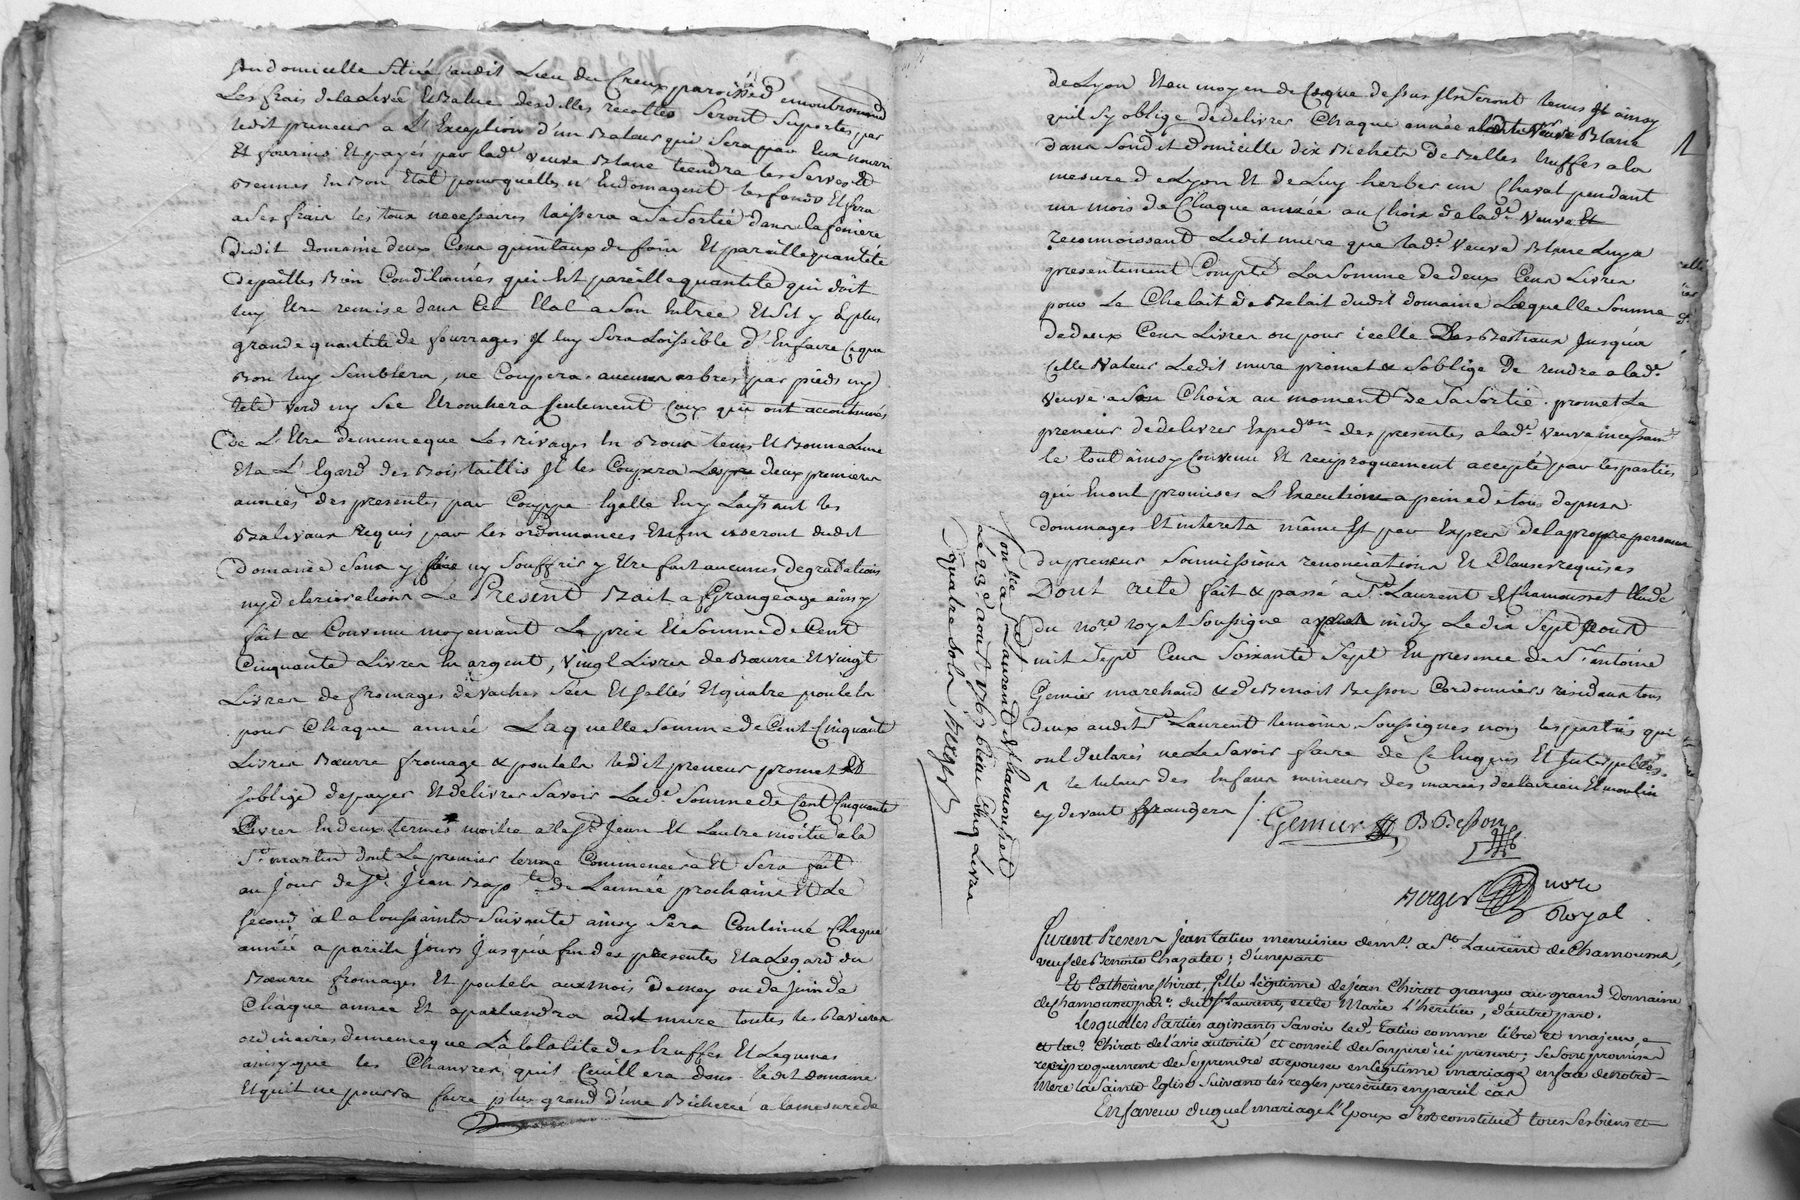 son domicille situé audit Lieu du Creux paroisse d'emontromand
Les frais de la Levée Et Batue desdittes recoltes seront suportés par
ledit preneur a L'Exception d'un Bateur qui sera par Eux nourri
Et fourins Et payés par lade veuve Blanc tiendra les serves Et
Bennes En Bon Etat pour quelles n'Endomagent les fonds Et fera
a ses frais les toux necessaires laissera a sa sortie dans la feniere
dudit domaine deux Cens quintaux de foin Et pareille quantité
depailles Bien Conditionnées qui Est pareille quantité qui doit
luy Etre remise dans Cet Etat a son Entrée Et sil y a plus
grande quantité de fourrages Il luy sera Loissible d'En faire Ce que
Bon luy semblera, ne Coupera aucuns arbres par pieds ny
tete verd ny sec Etronchera seulement Ceux qui ont accoutumés
de L'Etre dememeque Les rivages En Bons tems Et Bonne Lune
Et a L'Egard des Bois taillis Il les Coupera Les deux premieres
années des presentes par Couppe Egalle En y Laissant les
Balivaux requis par les ordonnances Et afin useront dudit
Domaine sans y faire ny souffrir y Etre fait aucunes degradations
ny deteriorations Le Present Bail a Grangeage ainsy
fait & Convenu moyenant Le prix Et somme de Cent
Cinquante Livres En argent, vingt Livres de Bœurre Et vingt
Livres de fromages de vaches secs Et sallés Et quatre poulets
pour Chaque année Laquelle somme de Cent Cinquante
Livres Bœurre fromage & poulets ledit preneur promet Et
soblige depayer Et delivrer savoir Lade somme de Cent Cinquante
Livres En deux termes moitié a la St Jean Et Lautre moitié a la
St martin dont Le premier terme Commencera Et sera fait
au jour de St Jean Bapte de Lannée prochaine Et Le
second a la toussaints suivante ainsy sera Continué Chaque
année a pareils jours jusqua fin des presentes Et a Legard du
Bœurre fromages Et poulets aux mois de may ou de juin de
Chaque année Et apartiendra audt mure toutes les Ravieres
ordinaires dememeque La totalité des truffes Et Legumes
ainsy que les Chanvres qu'il Cuillera dans ledit Domaine
Et quil ne pourra faire plus grand d'une Bicherée a la mesure de
de Lyon Et au moyen de Ceque dessus Ils seront tenus Et ainsy
quil sy oblige de delivrer Chaque année a ladte veuve Blanc
dans sondit domicille dix Bichets de Belles truffes a la
mesure de Lyon Et de Luy herber un Cheval pendant
un mois de Chaque année au Choix de lade veuve Et
reconnoissant Ledit mure que lade veuve Blanc Luy a
presentement Compté La somme de deux Cens Livres
pour Le Chetait de Betait dudit domaine Laquelle somme
de deux Cens Livres ou pour icelle Des Bestiaux jusqua
Celle valeur Ledit mure promet & soblige De rendre a lade
veuve a son Choix au moment De sa sortie. promet Le
preneur de delivrer Expedon des presentes a lade veuve incessamt
le tout ainsy Convenu Et reciproquement accepté par les parties
qui En ont promises L'Execution a peine de tous depens
dommages Et interets même Et par Exprès de la propre personne
du preneur soumissions renonciations Et Clauses requises
Dont acte fait & passé a St Laurent de Chamousset Etude
du nore royal soussigné après midy Le dix sept aoust
mil sept Cens soixante sept En presence de Sr antoine
Gemier marchand & de Benoit Besson Cordonniers residans tous
deux audit St Laurent temoins soussignés non les parties qui
ont declarés ne Le savoir faire de Ce Enquis Et Interpellés
le tuteur des Enfans mineurs des mariés delavrieu Et moulin
cy devant Grangers /. Gemier B Besson
Berger nore
Royal
Conlle a St Laurent de Chamousset
Le 23e aoust 1767 Reçu Cinq Livres
quatre sols Berger
Furent Presens Jean tatieu menuisier demt. a St Laurent de Chamousset,
veuf de Benoite Chazalet; d'une part
Et Catherine Chirat, fille légitime de jean Chirat granger au grand Domaine
de chamousset par. dudt St Laurent, et de Marie L'héritier, d'autre part.
lesquelles Parties agissants savoir led. tatieu comme libre et majeur, et
et lad. Chirat de l'avis autorité et conseil de son pere ici présent; se sont promises
réciproquement de se prendre et epouser en légitime mariage en face de notre
Mere la Sainte Eglise suivant les regles prescrites en pareil cas
En faveur duquel mariage L'Epoux s'est constitué tous ses biens et